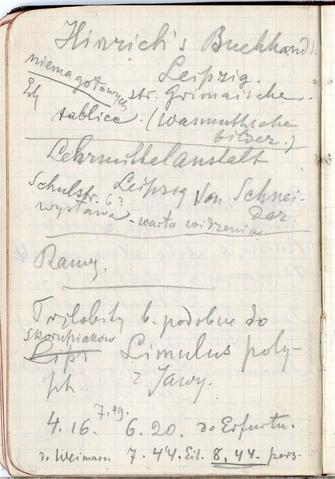 Hinrich's Buchhandl.
Leipzig.
niema gotowych str. Grimaische
tablice. (Wasmuthsche
bilder.)
Lehrmittelanstalt
Schulstr. 6? Leipzig Von Schnei-
der.
wystawa - warta widzenia
Ramy.
Trylobity b. podobne do
skorupiaków Limulus poly-
ph z Jawy.
7.49.
4.16. 6.20. do Erfurtu.
do Weimaru 7.44 Eil. 8.44. pers.